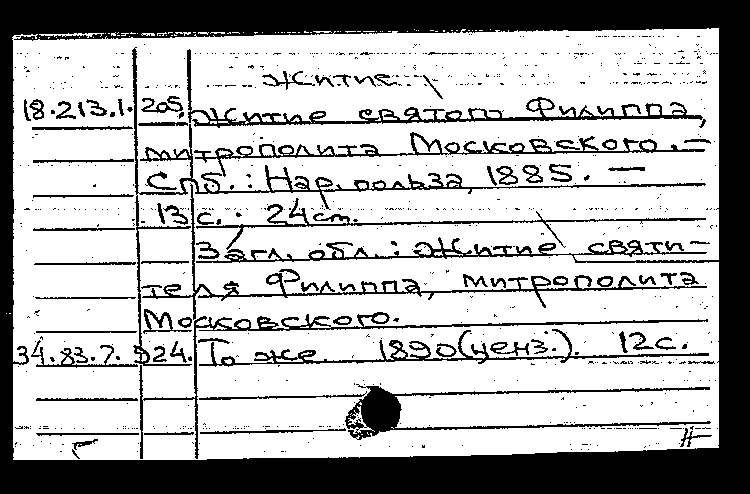 Житие
18.213.1.205. Житие святого Филиппа,
митрополита Московского. —
Спб.: Нар. польза, 1885. —
13 с. ; 24 см.
Загл. обл.: Житие святи-
теля Филиппа, митрополита
Московского.
34.83.7.924. То же. 1890 (ценз.). 12 с.
Н